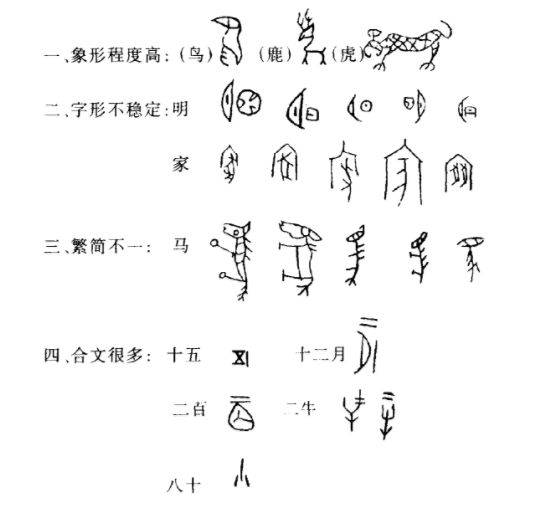 一、象形程度高：(鸟) (鹿) (虎)
二、字形不稳定：明
家
三、繁简不一： 马
四、合文很多： 十五 十二月
二百 二牛
八十